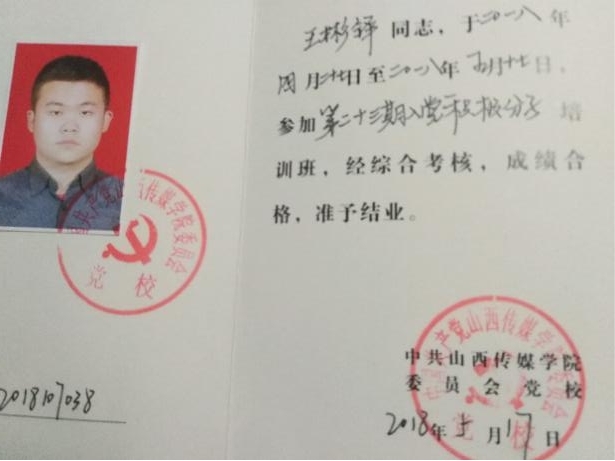 王彬铎 同志，于二〇一八年
四月二十七日至二〇一八年五月十七日，
参加第二十三期入党积极分子培
训班，经综合考核，成绩合
格，准予结业。
中共山西传媒学院
委员会党校
2018年5月17日
中共产党山西传媒学院委员会
党校
201807038